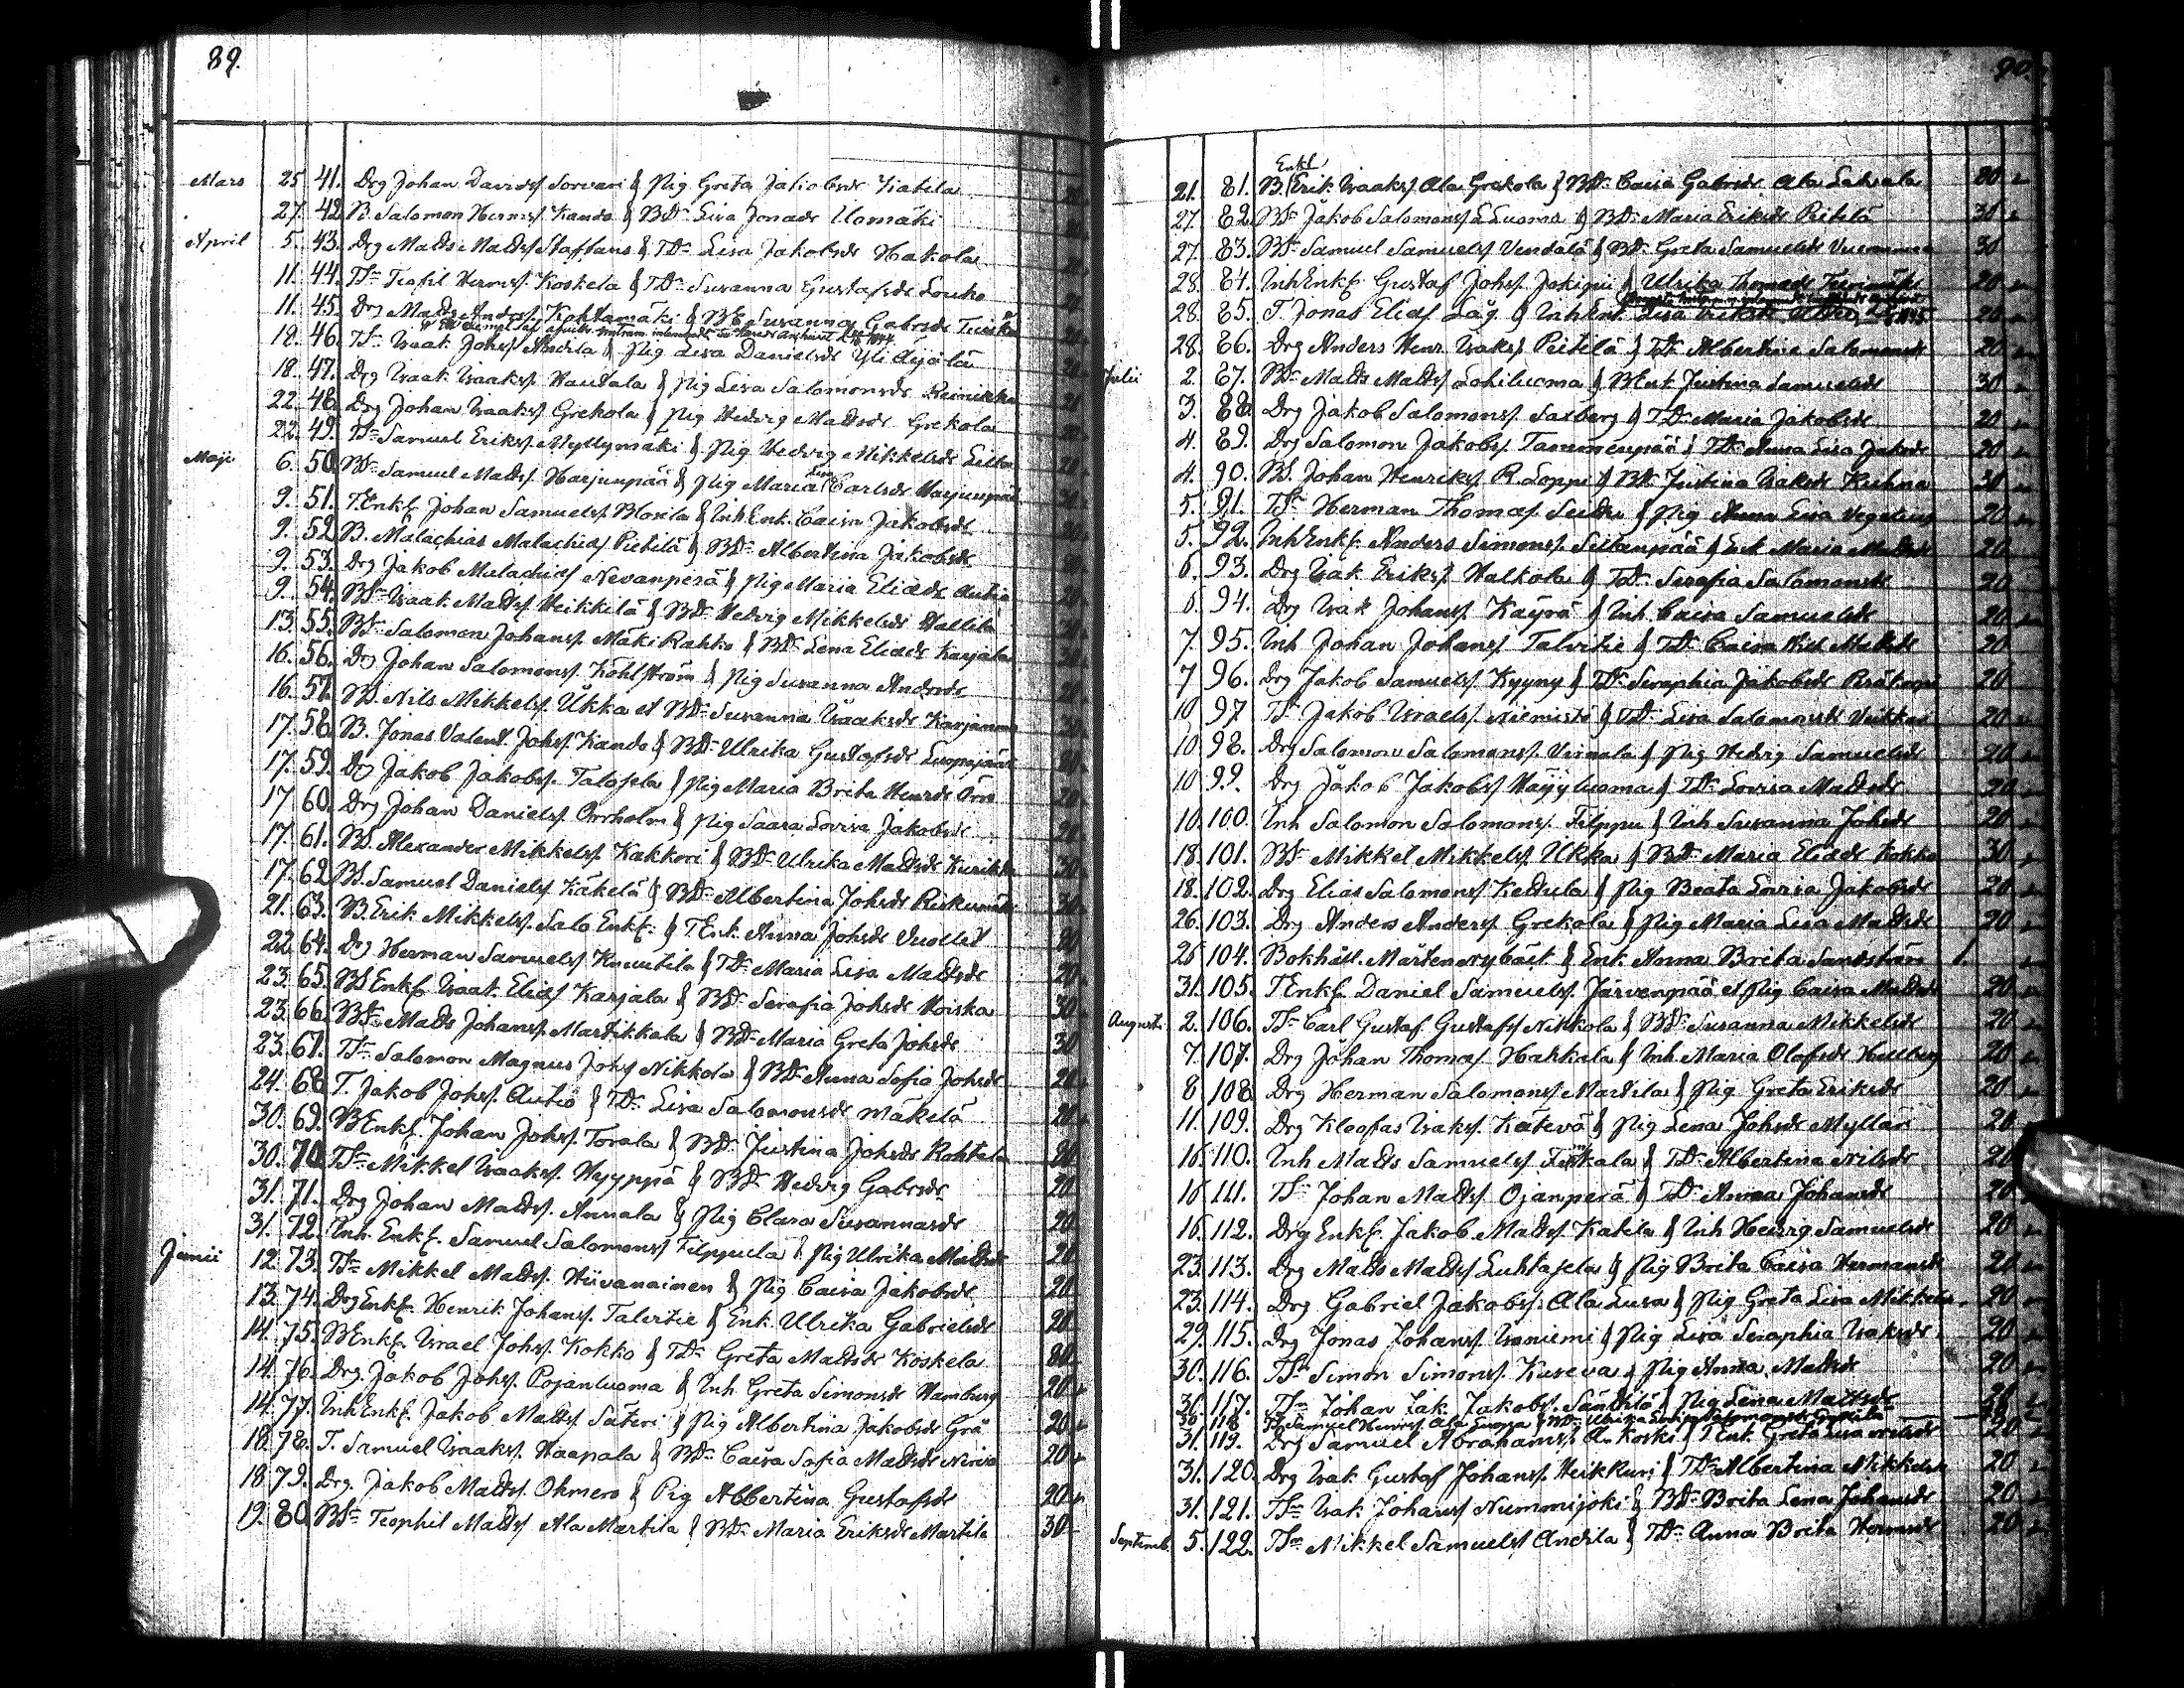 89.
Mars 25 41. Drg Johan Davidss Sorvari & Pig Greta Jakobsdr Katila
27. 42 B. Salomon Hermss. Kando & BDr Lisa Jonasdr Uomäki
April 5. 43. Drg Matts Mattss Staffans & TDr Lisa Jakobsdr Hakola
11. 44. TSn Teofil Hermss. Koskela & TDr Susanna Gustafsdr Louko
11. 45. Drg Matts Anderss. Kohtamäki & BE Susanna Gabrsdr
12. 46. TSn Isaak Johss Andila & Pig Lisa Danielsdr Yli Äijälä
18. 47. Drg Isaak Isaakss. Haudala & Pig Lisa Salomonsdr Reinikka
22. 48. Drg Johan Isaakss. Grekola & Pig Hedvig Mattsdr Grekola
22. 49. TSn Samuel Erikss. Myllymäki & Pig Hedvig Mikkelsdr
Maji 6. 50. BSn Samuel Mattss. Harjunpää & Pig Maria Lisa Carlsdr Harjunpää
9. 51. TEnkl Johan Samuelss. Blosila & Inh Enk. Caisa Jakobsdr
9. 52 B. Malachias Malachiass Pietilä & BDr Albertina Jakobsdr
9. 53. Drg Jakob Malachiass Nevanperä & Pig Maria Eliasdr Autio
9. 54. BSn Isaak Mattss Heikkilä & BDr Hedvig Mikkelsdr Hallila
13. 55. BSn Salomon Johanss. Mäki Rahko & BDr Lena Eliasdr Karjala
16. 56. Drg Johan Salomonss. Kohlström & Pig Susanna Andersdr
16. 57. BS. Nils Mikkelss. Ukka et BDr Susanna Isaaksdr Karjanmaa
17. 58. B. Jonas Valent. Johss. Kando & BDr Ulrika Gustafsdr Luopajärvi
17. 59. Drg Jakob Jakobss. Talosela & Pig Maria Brita Henrsdr Orre
17 60. Drg Johan Danielss. Orrholm & Pig Saara Lovisa Jakobsdr
17. 61. BS. Alexander Mikkelss. Kakkori & BDr Ulrika Mattsdr Kurikka
17. 62 BS. Samuel Danielss Käkelä & BDr Albertina Johsdr
21. 63. B. Erik Mikkelss. Salo Enkl. & TEnk. Anna Johsdr
22 64. Drg Herman Samuelss Knuutila & TDr Maria Lisa Mattsdr 20
23. 65. BSEnkl Isaak Eliass Karjala & BDr Serafia Johsdr Koiska 30
23. 66. BSn Matts Johanss. Martikkala & BDr Maria Greta Johsdr 30
23. 67. TSn Salomon Magnus Johss Nikkola & BDr Anna Sofia Johsdr 20
24. 68. T. Jakob Johss. Autio & TDr Lisa Salomonsdr Mäkelä 20
30. 69. BEnkl. Johan Johss. Torala & BDr Justina Johsdr Rahtala 80
30. 70. TSn Mikkel Isaakss. Hyyppä & BDr Hedvig Gabrsdr 20
31. 71. Drg Johan Mattss. Annala & Pig Clara Susannasdr 20
31. 72. Inh. Enkl. Samuel Salomonss Filppula & Pig Ulrika Mattsdr 20
Junii 12. 73. TSn Mikkel Mattss. Hiivanainen & Pig Caisa Jakobsdr 20
13. 74. Drg Enkl. Henrik Johanss. Talvitie & Enk. Ulrika Gabrielsdr 20
14. 75. BEnkl. Israel Johss. Kokko & TDr Greta Mattsdr Koskela 80
14. 76. Drg. Jakob Johss. Pojanluoma & Inh. Greta Simonsdr Hamburg 20
14. 77. InhEnkl. Jakob Mattss. Säteri & Pig Albertina Jakobsdr Grå 20
18. 78. T. Samuel Isaakss. Haapala & BDr Caisa Sofia Mattsdr 20
18 79. Drg. Jakob Mattss. Ohmero & Pig Albertina Gustafsdr 20
19. 80. BSn Teophil Mattss Ala Martila & BDr Maria Eriksdr Martila 30
90.
Enkl
21. 81. B. Erik Isaakss. Ala Grekola & BDr Caisa Gabrsdr Ala Lahsala 80
27. 82. BSn Jakob Salomonss Luoma & BDr Maria Eriksdr Pietilä 30
27. 83. BSn Samuel Samuelss. Vendälä & BDr Greta Samuelsdr 30
28. 84. InhEnkl. Gustaf Johss. Jokipii & Ulrika Thomasdr 20
28. 85. T. Jonas Eliass Låg. & Inh Enk. Lisa Eriksdr 20
28. 86. Drg Anders Henr. Isakss. Peitelä & TDr Albertina Salomonsdr 20
Julii 2. 87. BSn Matts Mattss Lohiluoma & BEnk Justina Samuelsdr 30
3. 88. Drg Jakob Salomonss. Saxberg & TDr Maria Jakobsdr 20
4. 89. Drg Salomon Jakobss. Tammenpää & TDr Anna Lisa Jaksdr 20
4. 90. BS. Johan Henrikss R. Loppi & BDr Justina Isaksdr Kuhna 30
5. 91. TSn Herman Thomass. & Pig Anna Lisa Vegelius 20
5. 92. InhEnkl. Anders Simonss. Sillanpää & Enk Maria Mattsdr 20
6. 93. Drg Isak Erikss. Halkola & TDr Serafia Salomonsdr 20
6. 94. Drg Isak Johanss. Käyrä & Inh. Caisa Samuelsdr 20
7. 95. Inh Johan Johanss Talvitie & TDr Caisa Mattsdr 20
7 96. Drg Jakob Samuelss. Kyyny & TDr Seraphia Jakobsdr 20
10 97 TSn Jakob Israelss. Niemistö & TDr Lisa Salomonsdr 20
10. 98. Drg Salomon Salomonss. & Pig Hedvig Samuelsdr 20
10 99. Drg Jakob Jakobss Häyyluoma & TDr Lovisa Mattsdr 20
10. 100. Inh Salomon Salomonss. Filppu & Inh Susanna Johsdr 20
18. 101. BSn Mikkel Mikkelss. Ukka & BDr Maria Eliasdr Kokko 30
18. 102. Drg Elias Salomonss Kettula & Pig Beata Lovisa Jakobsdr 20
26. 103. Drg Anders Anderss. Grekola & Pig Maria Lisa Mattsdr 20
26 104. Bokhåll. Mårten Nybäck & Enk. Anna Brita Sandström 1.
31. 105. TEnkl. Daniel Samuelss. Järvenpää et Pig Caisa Mattsdr 20
Augusti 2. 106. TSn Carl Gustaf Gustafss Nikkola & BDr Susanna Mikkelsdr 20
7. 107. Drg Johan Thomass. Hakkala & Inh. Maria Olofsdr Hellberg 20
8 108 Drg Herman Salomonss Martila & Pig Greta Eriksdr 20
11. 109. Drg Kleofas Isakss. Kätevä & Pig Lena Johsdr Myllari 20
16. 110. Inh Matts Samuelss & TDr Albertina Nilsdr 20
16 111. TSn Johan Mattss. Ojanperä & TDr Anna Johansdr 20
16. 112. Drg Enkl. Jakob Mattss. Katila & Inh Hedvig Samuelsdr 20
23. 113. Drg Matts Mattss Luhtasela & Pig Brita Caisa Hermansdr 20
23. 114. Drg Gabriel Jakobss. Ala Lusa & Pig Greta Lisa Mikkelsdr 20
29. 115. Drg Jonas Johanss. Isoniemi & Pig Lisa Seraphia Isaksdr 20
30. 116. TSn Simon Simonss. Kuseva & Pig Anna Mattsdr 20
30 117. TSn Johan Zak. Jakobss. Sändilä & Pig Lena Mattsdr 20
30 118 TSn Samuel Henrss. Ala Luopa & BDr Ulrika Lovisa Salomonsdr
31. 119. Drg Samuel Abrahamss. A. Koski & TEnk Greta Lisa Nilsdr 20
31. 120. Drg Isak Gustaf Johanss. Heikkuri & TDr Albertina Mikkelsdr 20
31. 121. TSn Isak Johanss Nummijoki & BDr Brita Lena Johansdr 20
Septemb. 5. 122. TSn Mikkel Samuelss Andila & TDr Anna Brita Hermsdr 20